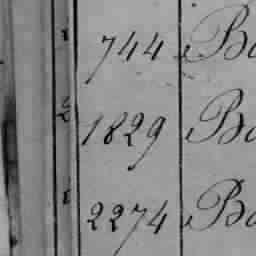 744 Ba
1829 Ba
2274 Ba